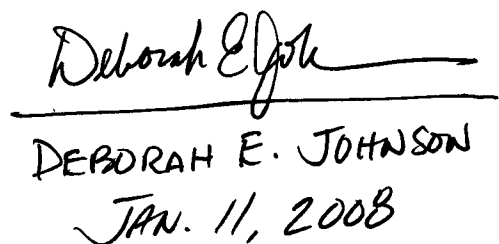 Deborah E Joh
DEBORAH E. JOHNSON
JAN. 11, 2008